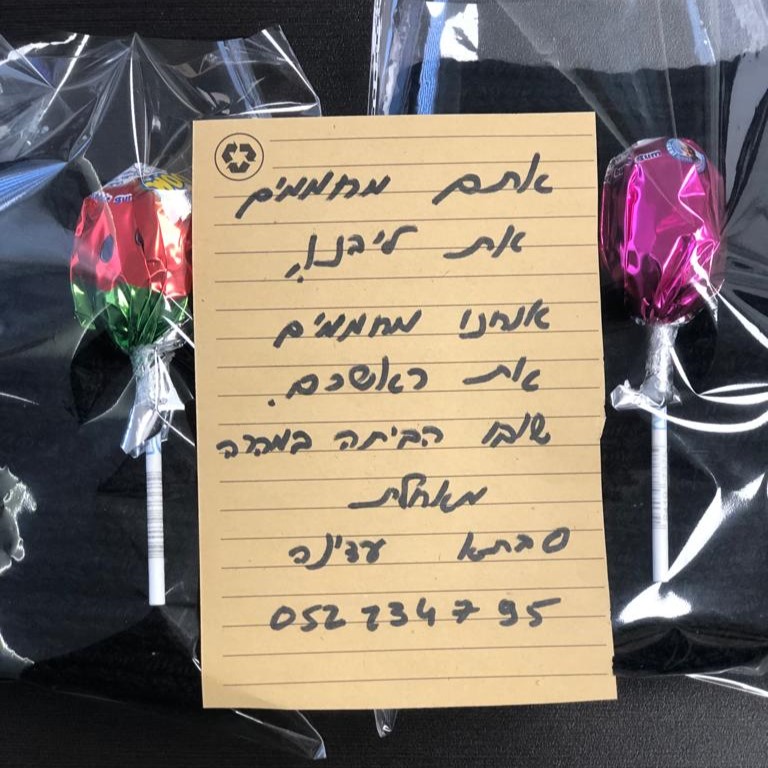 אתם מחממים
את ליבנו,
אנחנו מחממים
את ראשכם.
שובו הביתה במהרה
מאחלת
סבתא עדינה
052 2347 95
gum